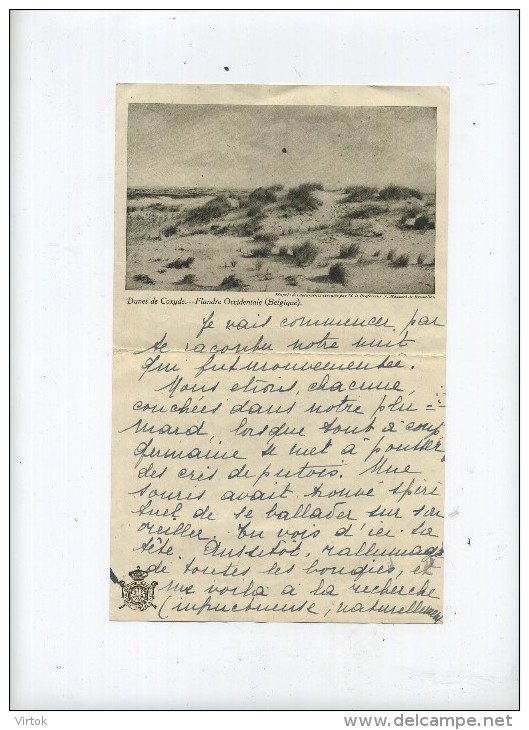 D'après des documents
Dunes de Coxyde.—Flandre Occidentale (Belgique).
Je vais commencer par
te raconter notre nuit
qui fut mouvementée.
Nous etions, chacune,
couchées dans notre plu =
mard, lorsque tout à coup
germaine se met à pousser
des cris de putois. Une
souris avait trouvé spiri
tuel de se ballader sur son
oreiller. Tu vois d'ici sa
tête. Aussitôt, rallumage
de toutes les bougies, et
me voilà à la recherche
(infructueuse, naturellement
Virtok
www.delcampe.net